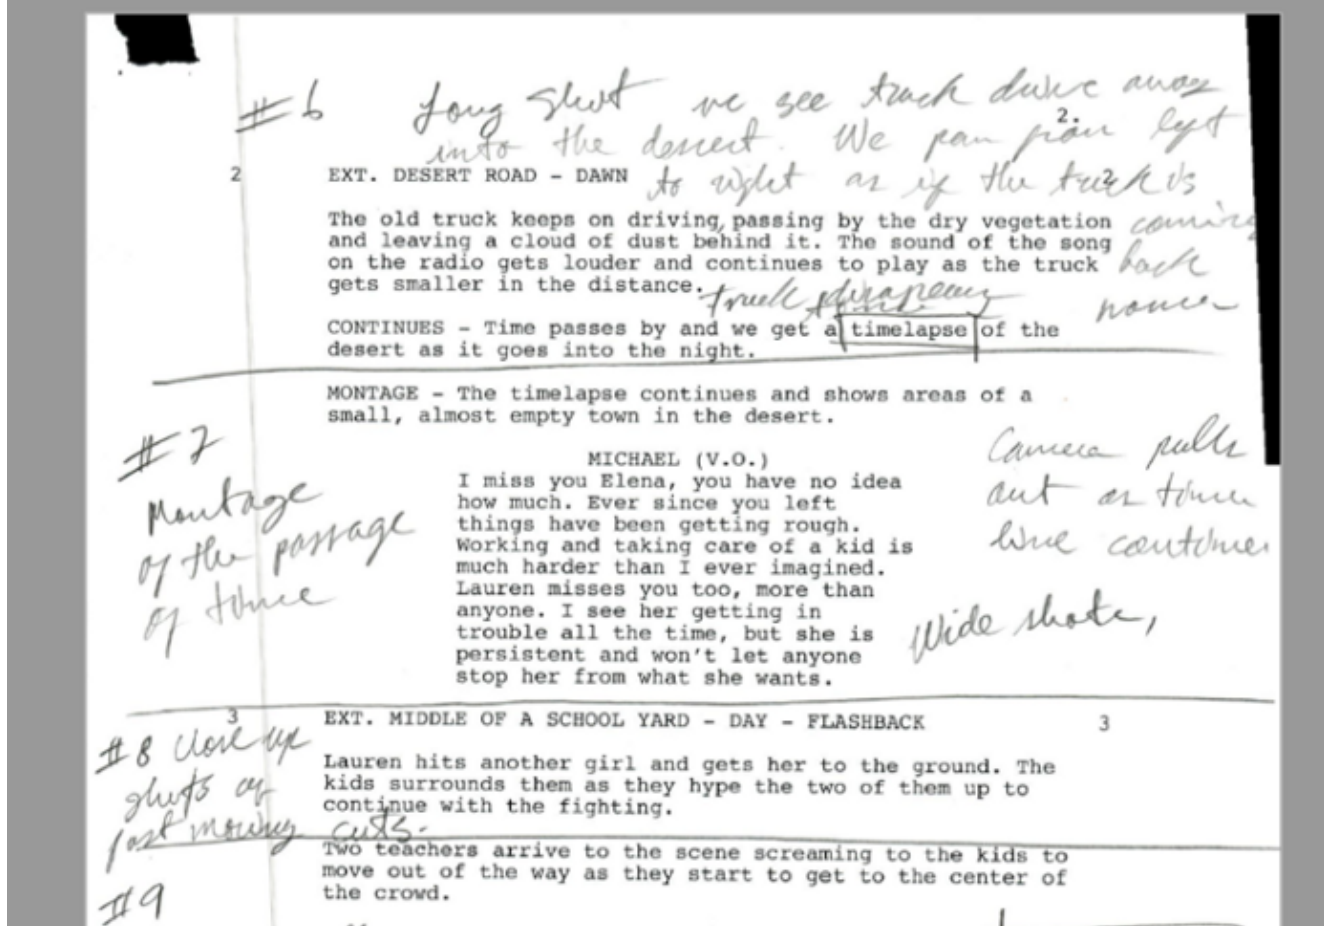 #6 Long Shot we see truck drive away
2.
into the desert. We pan from left
2 EXT. DESERT ROAD - DAWN to right as if the truck is 2
The old truck keeps on driving, passing by the dry vegetation coming
and leaving a cloud of dust behind it. The sound of the song
on the radio gets louder and continues to play as the truck back
gets smaller in the distance. truck
CONTINUES - Time passes by and we get a timelapse of the
desert as it goes into the night.
MONTAGE - The timelapse continues and shows areas of a
small, almost empty town in the desert.
#7
Montage
of the passage
of time
MICHAEL (V.O.)
I miss you Elena, you have no idea
how much. Ever since you left
things have been getting rough.
Working and taking care of a kid is
much harder than I ever imagined.
Lauren misses you too, more than
anyone. I see her getting in
trouble all the time, but she is
persistent and won't let anyone
stop her from what she wants.
Camera pulls
out as time
line continues
Wide shots,
3 EXT. MIDDLE OF A SCHOOL YARD - DAY - FLASHBACK 3
#8 close up
shots of
fast moving cuts.
Lauren hits another girl and gets her to the ground. The
kids surrounds them as they hype the two of them up to
continue with the fighting.
Two teachers arrive to the scene screaming to the kids to
move out of the way as they start to get to the center of
the crowd.
#9